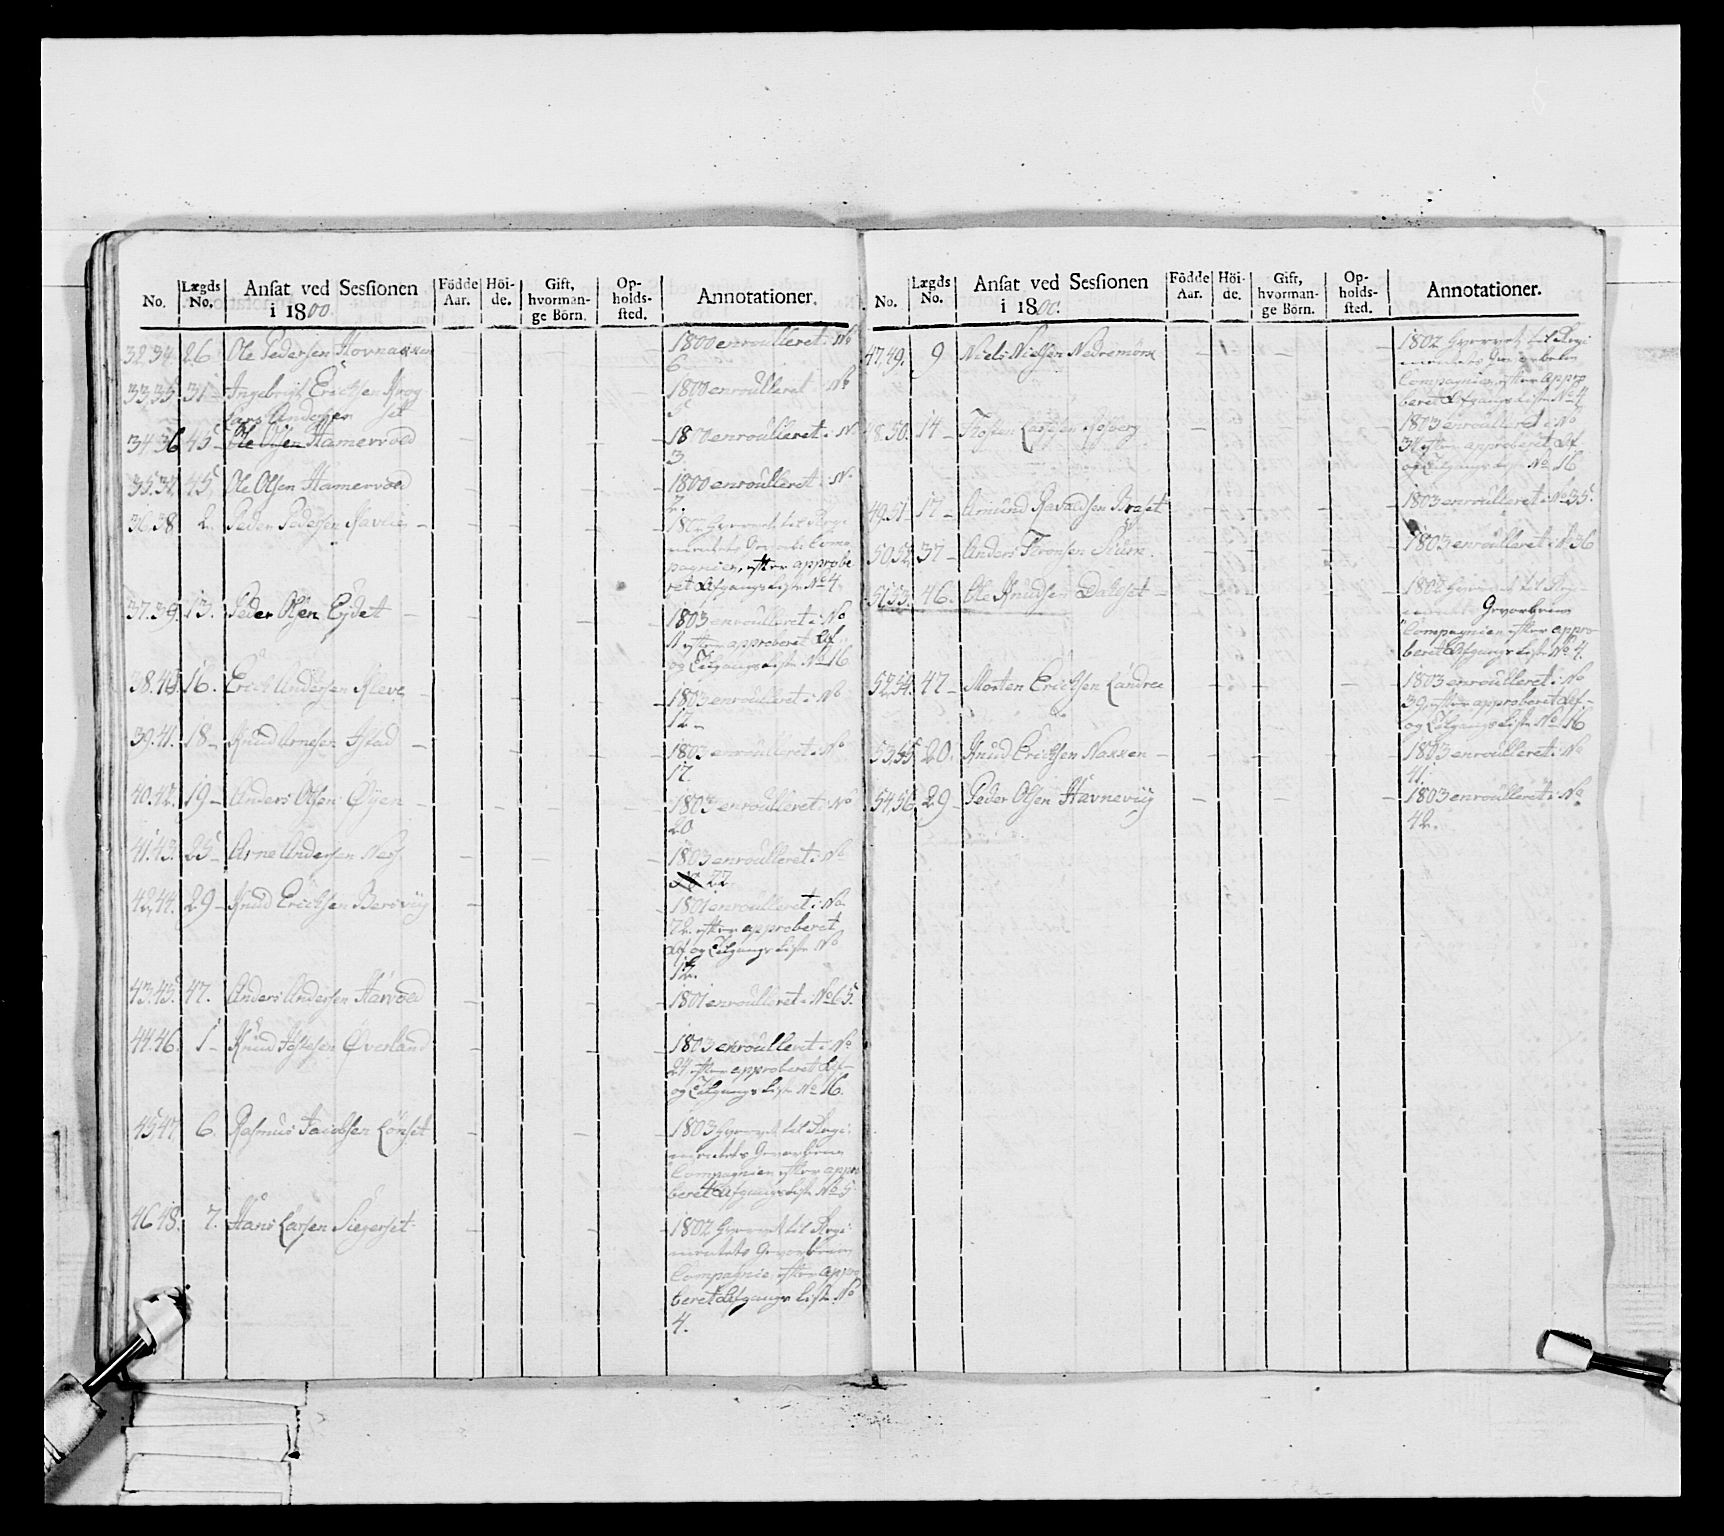 No. Lægds No. Ansat ved Sessionen i 1800 Födde Aar. Höi-de. Gift, hvorman-ge Börn. Op-holds-sted. Annotationer.
32.34. 26 Ole Pedersen Hovnackken 1800 enroulleret i No
6
33.35 31 Ingebrigt Erichsen Krog 1800 enroulleret No
Lars Andersen set 5
34.36 45 Ole Olsen Hamervold 1800 enroulleret i No
3.
35.37 45 Ole Olsen Hamervold 1800 enroulleret i No
2.
36.38 2. Peder Pedersen 1802 hvervet til Regi
mentets
pagnier, efter approbe
ret Afgangsliste No 4.
37.39. 13. Peder Olsen Ejdet 1803 enroulleret i No
11 efter approberet Af-
og Tilgangsliste No 16
38.40. 16. Erich Andersen Kleve 1803 enroulleret i No
12
39.41. 18 Knud Arnesen Istad 1803 enroulleret i No
17.
40.42. 19 Anders Olsen Øyen 1803 enroulleret i No
20
41.43. 25 Arne Andersen Nes 1803 enroulleret i No
22.
42.44. 29 Knud Erichsen Bersviig 1801 enroulleret i No
72. efter approberet
Af- og Tilgangsliste No
12.
43.45. 47. Anders Andersen Harvold 1801 enroulleret i No 65.
44.46. 1 Knud Øverland 1803 enroulleret i No
27 efter approberet Af-
og Tilgangsliste No 16.
45.47 6. Rasmus Jacobsen Lönset 1803 hvervet til Regi
mentets Gevorbene
Compagnien efter appro
beret Afgangsliste No 5
46.48. 7. Hans Larsen Siegerset 1802 hvervet til Regi
mentets Gevorbene
Compagnie, efter appro
beret Afgangsliste No
4.
No. Lægds No. Ansat ved Sessionen i 1800. Födde Aar. Höi-de. Gift, hvorman-ge Börn. Op-holds-sted. Annotationer.
47.49. 9 Niels Nielsen Nedremörk 1802 hvervet til Regi
mentets Gevorbene
Compagnier, efter appro
beret Afgangsliste No 4
48.50. 14 Larsen 1803 enroulleret i No
34 efter approberet Af
og Tilgangsliste No 16
49.51 17 Amund 1803 enroulleret i No 35.
50.52 37 Anders 1803 enroulleret i No 36
51.53. 46. Ole Knudsen Daleset 1802 hvervet til Regi-
mentets Gevorbene
Compagnien efter appro
beret Afgangsliste No 4.
52.54. 47 Morten Erichsen Landree 1803 enroulleret i No
39, efter approberet Af-
og Tilgangsliste No 16
53.55. 20. Knud Erichsen Nakken 1803 enroulleret i No
41.
54.56 29 Peder Olsen Havneviig 1803 enroulleret i No
42.